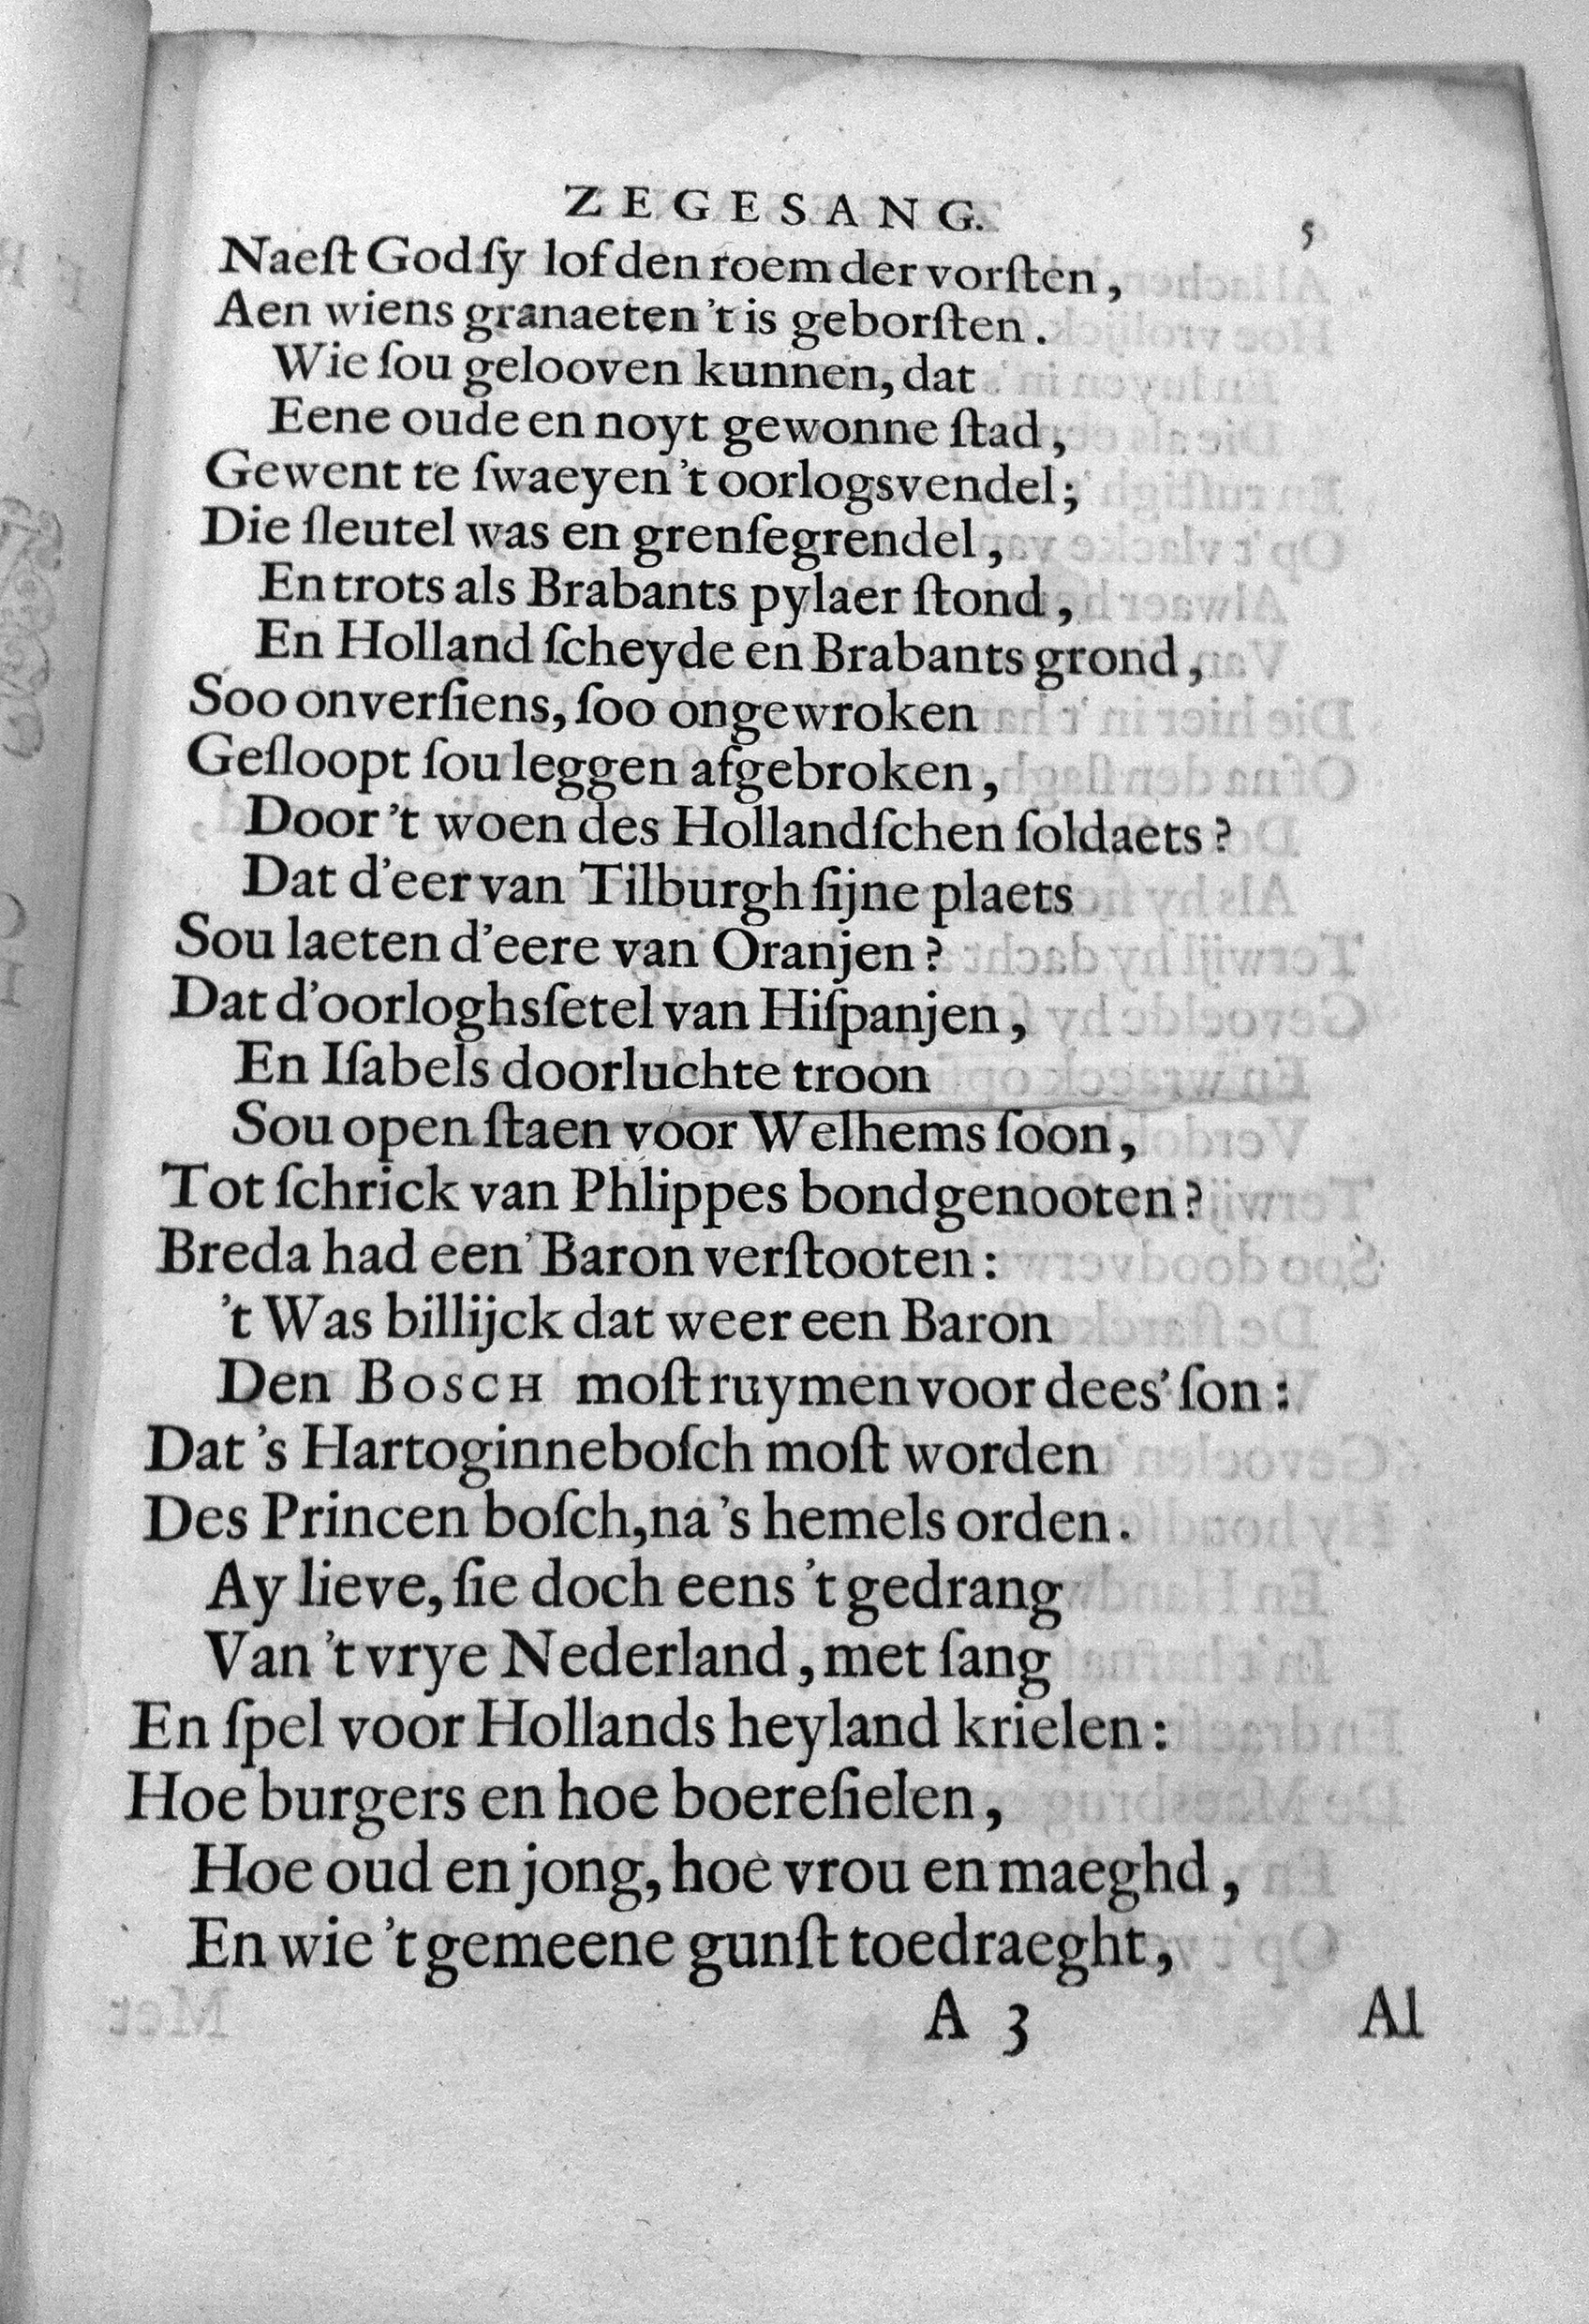 ZEGESANG. 5
Naeſt God ſy lof den roem der vorſten,
Aen wiens granaeten 't is geborſten.
Wie ſou gelooven kunnen, dat
Eene oude en noyt gewonne ſtad,
Gewent te ſwaeyen 't oorlogsvendel;
Die ſleutel was en grenſegrendel,
En trots als Brabants pylaer ſtond,
En Holland ſcheyde en Brabants grond,
Soo onverſiens, ſoo ongewroken
Geſloopt ſou leggen afgebroken,
Door 't woen des Hollandſchen ſoldaets?
Dat d'eer van Tilburgh ſijne plaets
Sou laeten d'eere van Oranjen?
Dat d'oorloghsſetel van Hiſpanjen,
En Iſabels doorluchte troon
Sou open ſtaen voor Welhems ſoon,
Tot ſchrick van Phlippes bondgenooten?
Breda had een' Baron verſtooten:
't Was billijck dat weer een Baron
Den BOSCH moſt ruymen voor dees' ſon:
Dat 's Hartoginneboſch moſt worden
Des Princen boſch, na 's hemels orden.
Ay lieve, ſie doch eens 't gedrang
Van 't vrye Nederland, met ſang
En ſpel voor Hollands heyland krielen:
Hoe burgers en hoe boereſielen,
Hoe oud en jong, hoe vrou en maeghd,
En wie 't gemeene gunſt toedraeght,
A 3 Al